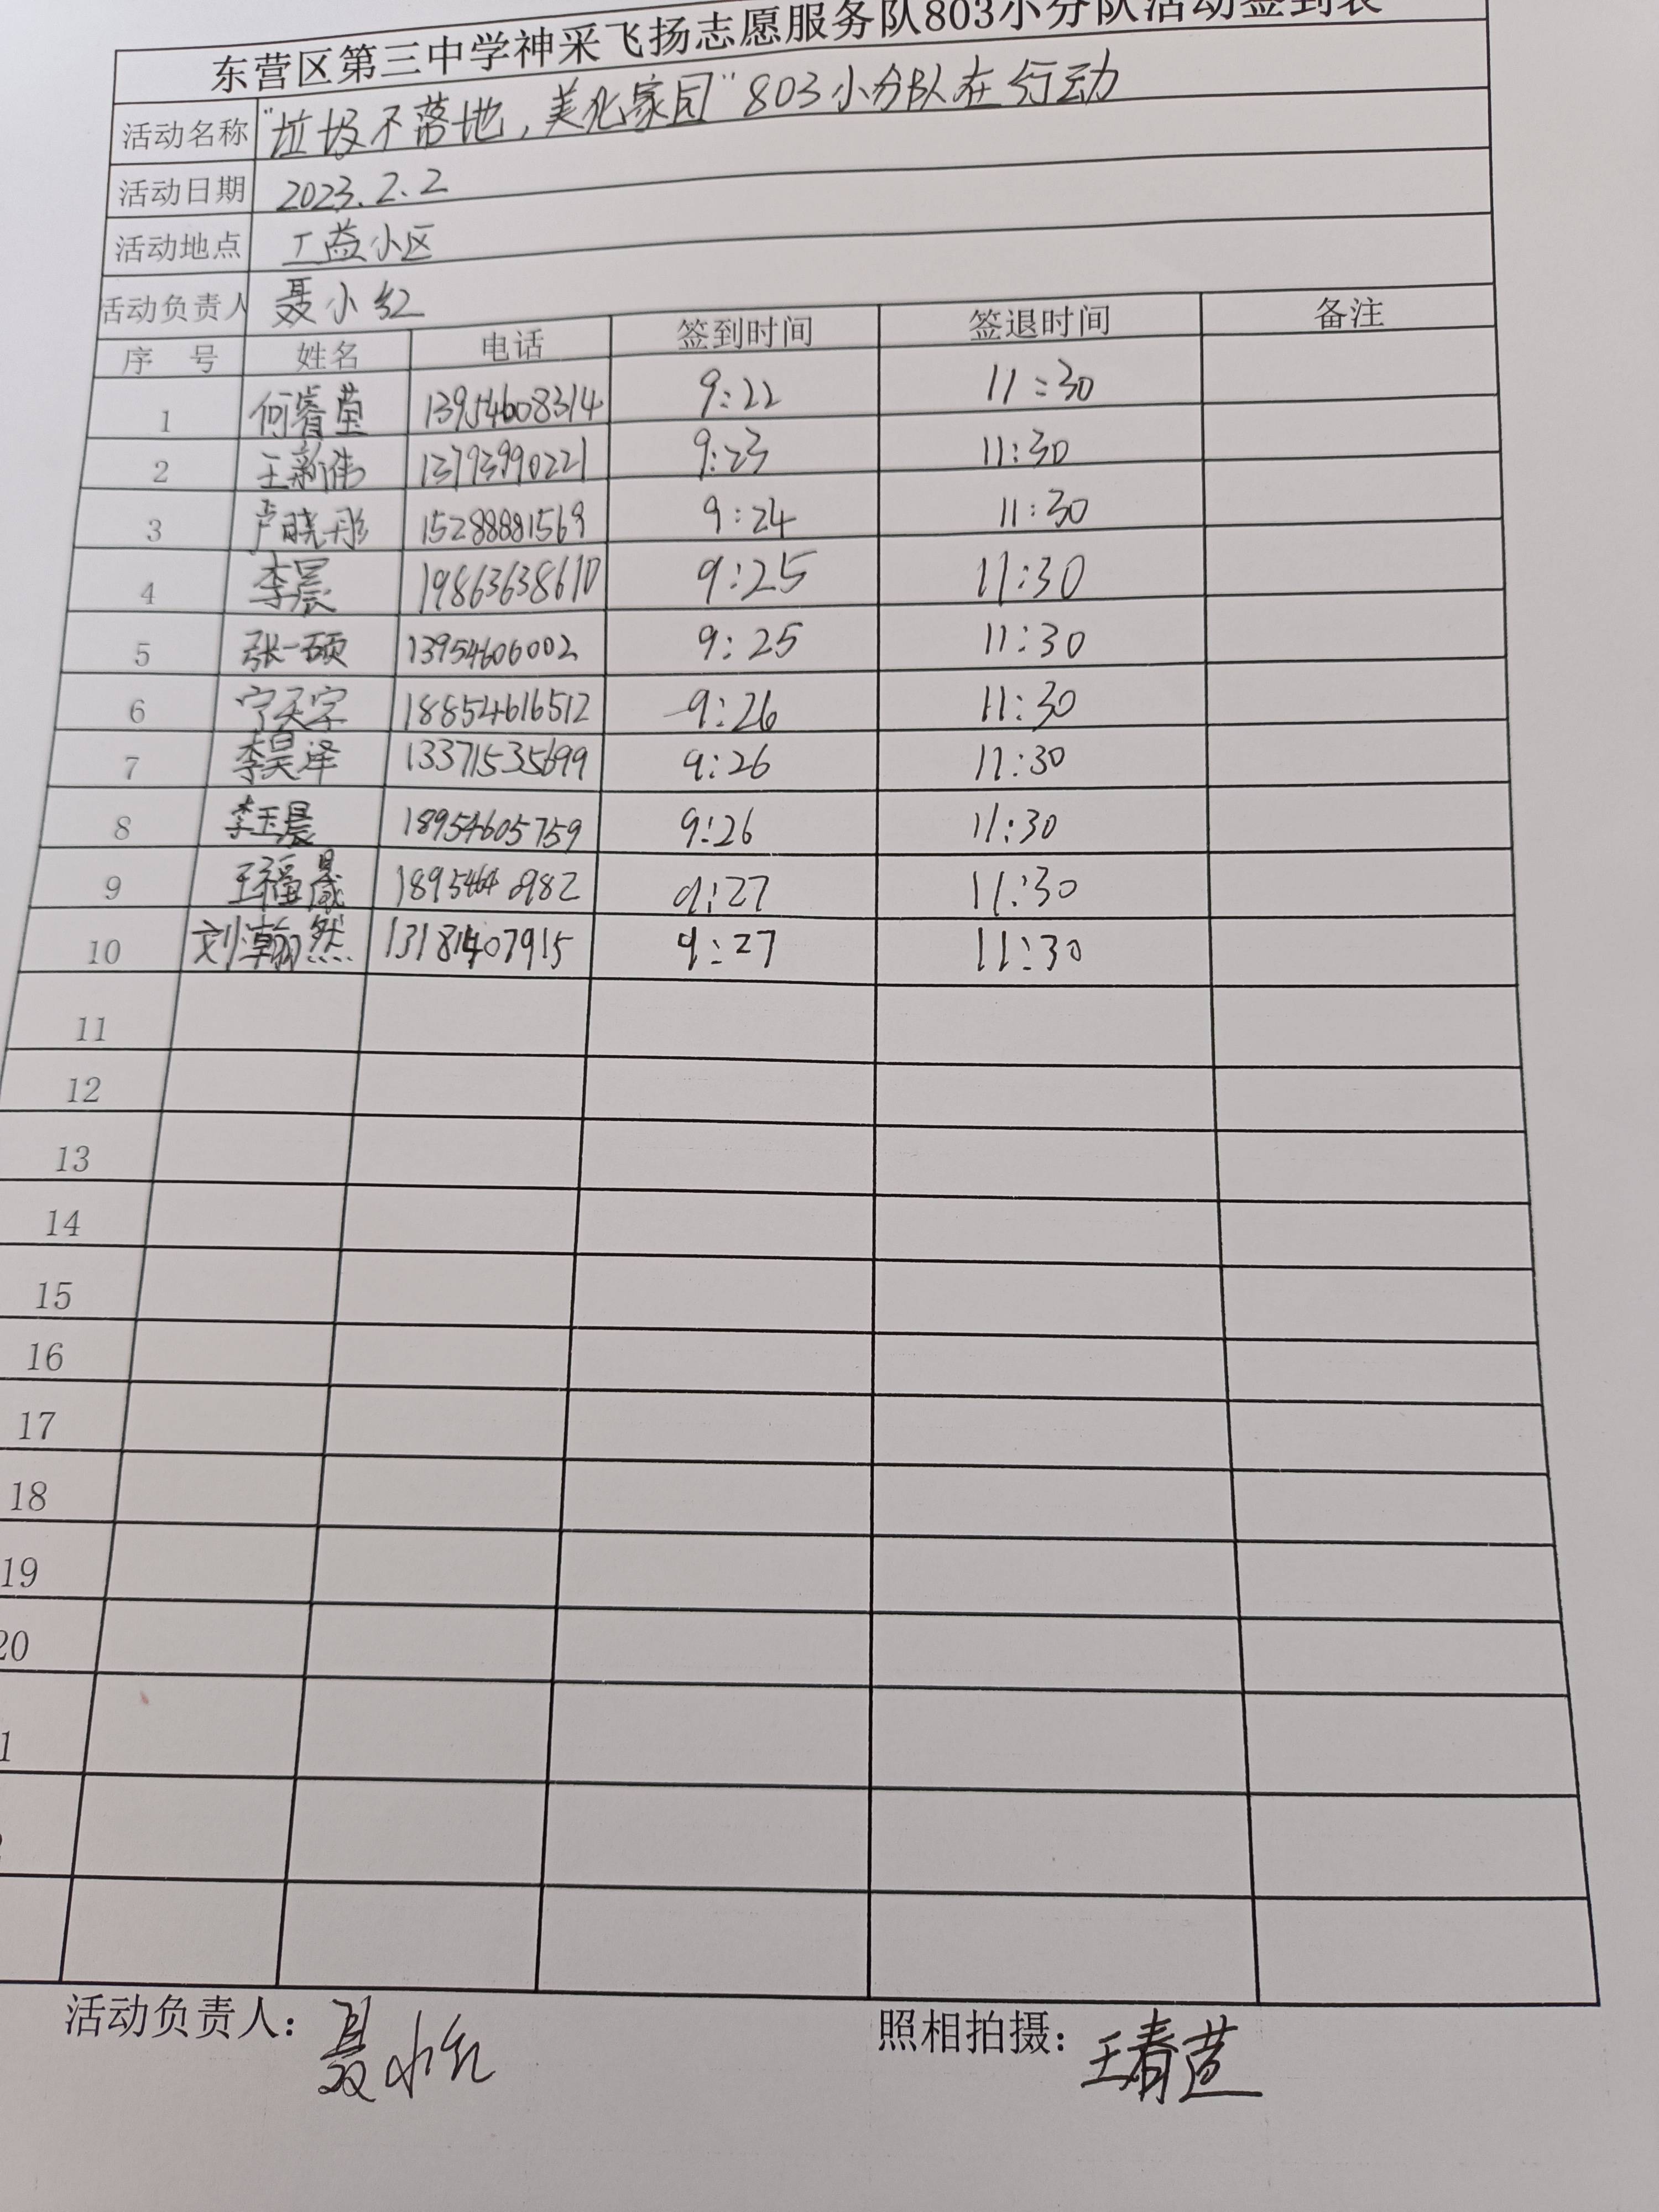 东营区第三中学神采飞扬志愿服务队803小分队活动签到表
活动名称 "垃圾不落地,美化家园"803小分队在行动
活动日期 2023.2.2
活动地点 工益小区
活动负责人 聂小红
序 号 姓名 电话 签到时间 签退时间 备注
1 何睿莹 13954608314 9:22 11:30
2 王新伟 13793990221 9:23 11:30
3 卢晓彤 15288881569 9:24 11:30
4 李晨 19863638610 9:25 11:30
5 张一硕 13954606002 9:25 11:30
6 宁天宇 18854616512 9:26 11:30
7 李昊泽 13371535699 9:26 11:30
8 李玉晨 18954605759 9:26 11:30
9 王福晟 9:27 11:30
10 刘瀚然 13181407915 9:27 11:30
11
12
13
14
15
16
17
18
19
20
1
活动负责人: 聂小红 照相拍摄: 王春